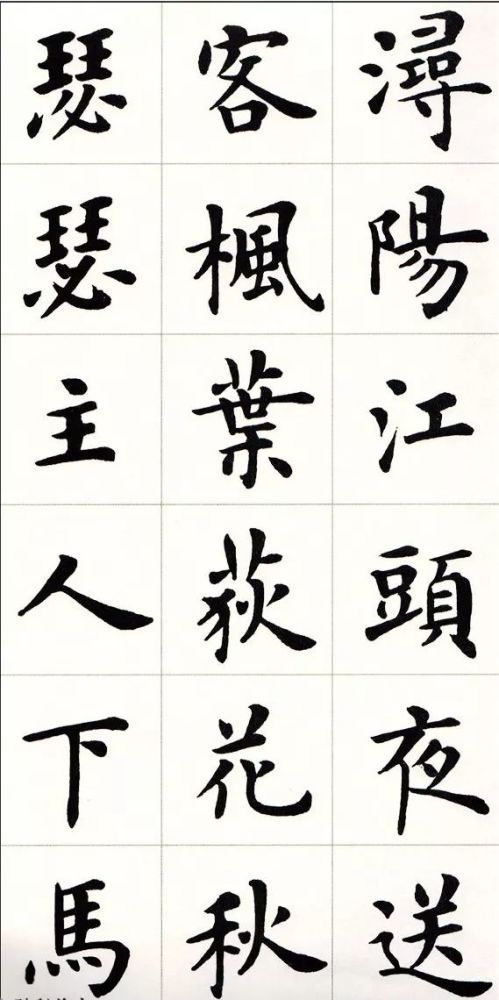 潯陽江頭夜送
客楓葉荻花秋
瑟瑟主人下馬